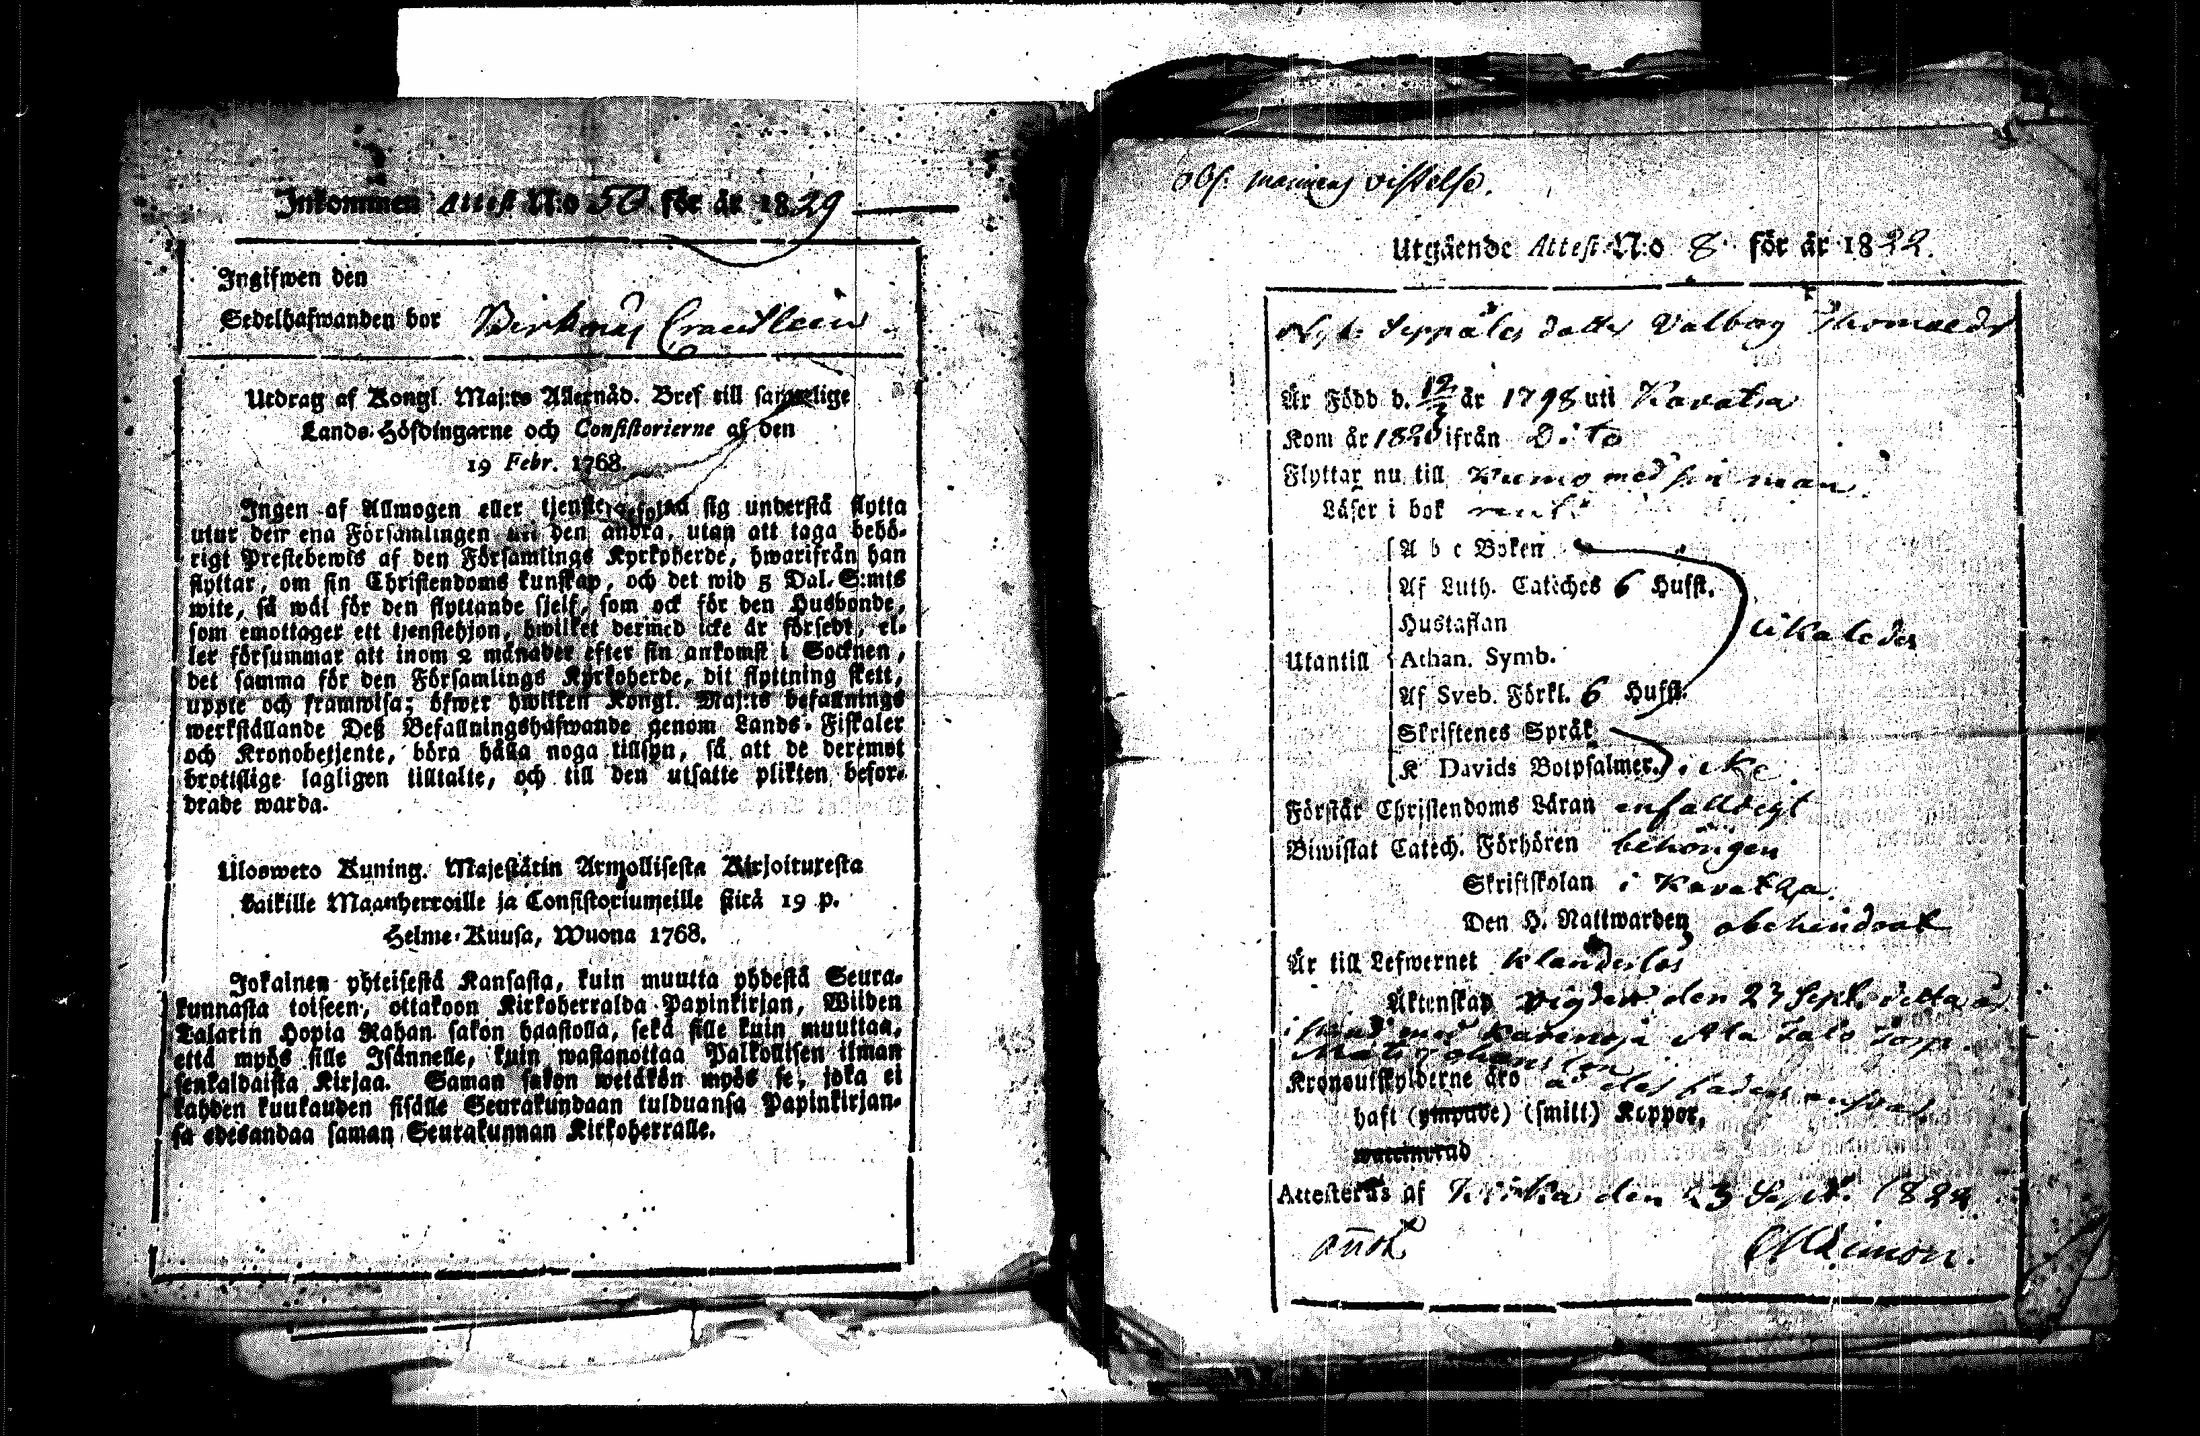 Inkommen Attest N:o 50 för år 1829
Ingifwen den
Sedelhafwanden bor
Utdrag af Kongl. Maj:ts Allernåd. Bref till samtelige
Lands-Höfdingarne och Consistorierne af den
19 Febr. 1768.
Ingen af Allmogen eller tjenste sig understå flytta
utur den ena Församlingen uti den andra, utan att taga behö-
rigt Prestebewis af den Församlings Kyrkoherde, hwarifrån han
flyttar, om sin Christendoms kunskap, och det wid 5 Dal. S:mts
wite, så wäl för den flyttande sjelf, som ock för den Husbonde,
som emottager ett tjenstehjon, hwilket dermed icke är försedt, el-
ler försummar att inom 2 månader efter sin ankomst i Socknen,
det samma för den Församlings Kyrkoherde, dit flyttning skett,
uppte och framwisa; öfwer hwilken Kongl. Maj:ts befallnings
werkställande Deß Befallningshafwande genom Lands-Fiskaler
och Kronobetjente, böra hålla noga tillsyn, så att de deremot
brottslige lagligen tilltalte, och till den utsatte plikten befor-
drade warda.
Ulosweto Kuning. Majestätin Armollisesta Kirjoituxesta
kaikille Maanherroille ja Consistoriumeille siitä 19 p.
Helme-Kuusa, Wuona 1768.
Jokainen yhteisestä Kansasta, kuin muutta yhdestä Seura-
kunnasta toiseen, ottakoon Kirkoherralda Papinkirjan, Wiiden
Talarin Hopia Rahan sakon haastolla, sekä sille kuin muuttaa,
että myös sille Isännelle, kuin wastanottaa Palkollisen ilman
senkaldaista Kirjaa. Saman sakon wetäkön myös se, joka ei
kahden kuukauden sisälle Seurakundaan tulduansa Papinkirjan-
sa edesandaa saman Seurakunnan Kirkoherralle.
obs. mannens vistelse.
Utgående Attest N:o 8 för år 1822.
Seppälä dotter Valborg Thomasdr
Är Född d. 12/3 år 1798 uti Kavatsa
Kom år 1820 ifrån Dito
Flyttar nu till Kumo med sin man.
Läser i bok rent.
A b c Boken
Af Luth. Cateches 6 Hufst.
Hustaflan
Utantill Athan. Symb.
Af Sveb. Förkl. 6 Hufst.
likaledes
Skriftenes Språk
K Davids Botpsalmer. icke.
Förstår Christendoms Läran enfaldigt
Biwistat Catech. Förhören behörigen
Skriftskolan i Kavatsa
Den H. Nattwarden obehindrat
Är till Lefwernet klanderlös
Äktenskap Vigder den 23 Sept. detta år
med Ala Talo
Matts Johansson
Kronoutskylderne äro
haft (ympade) (smitt.) Koppor,
waccinerad
Attesteras af den 23 Sept. 1822